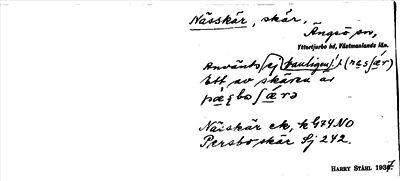 Nässkär, skär,
Ängsö sn,
Yttertjurbo hd, Västmanlands län.
Används (ej vanligen)! (næsʃær)
Ett av skären är
ʃærə
Nässkär ek, k G74 NO
Persbo skär Sj 242.
HARRY STÅHL 1937.